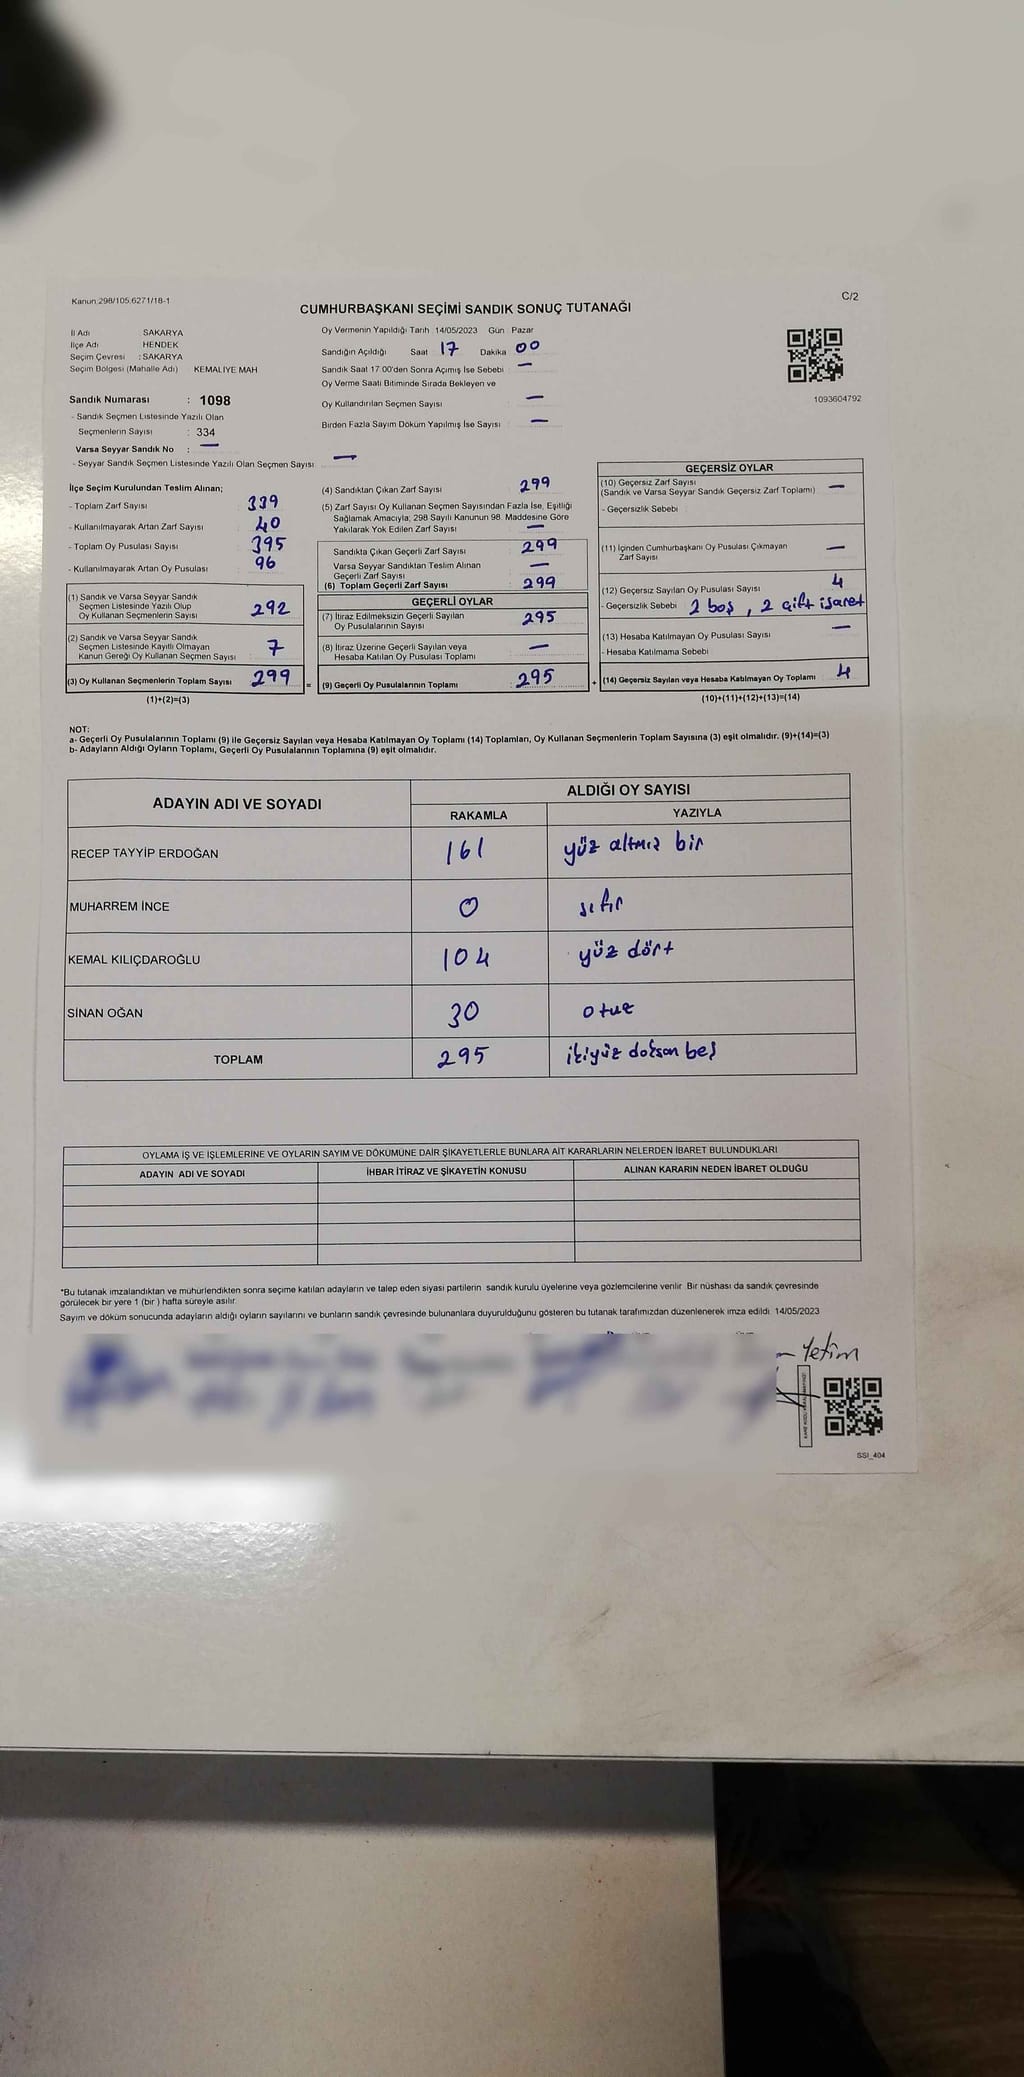 Kanun:298/105,6271/18-1
C/2
CUMHURBAŞKANI SEÇİMİ SANDIK SONUÇ TUTANAĞI
İl Adı SAKARYA
İlçe Adı HENDEK
Seçim Çevresi : SAKARYA
Seçim Bölgesi (Mahalle Adı) KEMALİYE MAH
Sandık Numarası : 1098
- Sandık Seçmen Listesinde Yazılı Olan
Seçmenlerin Sayısı : 334
Varsa Seyyar Sandık No : —
- Seyyar Sandık Seçmen Listesinde Yazılı Olan Seçmen Sayısı —
Oy Vermenin Yapıldığı Tarih 14/05/2023 Gün Pazar
Sandığın Açıldığı Saat 17 Dakika 00
Sandık Saat 17:00'den Sonra Açımış İse Sebebi —
Oy Verme Saati Bitiminde Sırada Bekleyen ve
Oy Kullandırılan Seçmen Sayısı —
Birden Fazla Sayım Döküm Yapılmış İse Sayısı —
1093604792
İlçe Seçim Kurulundan Teslim Alınan;
- Toplam Zarf Sayısı 339
- Kullanılmayarak Artan Zarf Sayısı 40
- Toplam Oy Pusulası Sayısı 395
- Kullanılmayarak Artan Oy Pusulası 96
(1) Sandık ve Varsa Seyyar Sandık
Seçmen Listesinde Yazılı Olup
Oy Kullanan Seçmenlerin Sayısı 292
(2) Sandık ve Varsa Seyyar Sandık
Seçmen Listesinde Kayıtlı Olmayan
Kanun Gereği Oy Kullanan Seçmen Sayısı 7
(3) Oy Kullanan Seçmenlerin Toplam Sayısı 299 =
(1)+(2)=(3)
(4) Sandıktan Çıkan Zarf Sayısı 299
(5) Zarf Sayısı Oy Kullanan Seçmen Sayısından Fazla İse, Eşitliği
Sağlamak Amacıyla; 298 Sayılı Kanunun 98. Maddesine Göre
Yakılarak Yok Edilen Zarf Sayısı —
Sandıkta Çıkan Geçerli Zarf Sayısı 299
Varsa Seyyar Sandıktan Teslim Alınan
Geçerli Zarf Sayısı —
(6) Toplam Geçerli Zarf Sayısı 299
GEÇERLİ OYLAR
(7) İtiraz Edilmeksizin Geçerli Sayılan
Oy Pusulalarının Sayısı 295
(8) İtiraz Üzerine Geçerli Sayılan veya
Hesaba Katılan Oy Pusulası Toplamı —
(9) Geçerli Oy Pusulalarının Toplamı 295 +
GEÇERSİZ OYLAR
(10) Geçersiz Zarf Sayısı
(Sandık ve Varsa Seyyar Sandık Geçersiz Zarf Toplamı) —
- Geçersizlik Sebebi
(11) İçinden Cumhurbaşkanı Oy Pusulası Çıkmayan
Zarf Sayısı —
(12) Geçersiz Sayılan Oy Pusulası Sayısı 4
- Geçersizlik Sebebi 2 boş, 2 çift işaret
(13) Hesaba Katılmayan Oy Pusulası Sayısı —
- Hesaba Katılmama Sebebi
(14) Geçersiz Sayılan veya Hesaba Katılmayan Oy Toplamı 4
(10)+(11)+(12)+(13)=(14)
NOT:
a- Geçerli Oy Pusulalarının Toplamı (9) ile Geçersiz Sayılan veya Hesaba Katılmayan Oy Toplamı (14) Toplamları, Oy Kullanan Seçmenlerin Toplam Sayısına (3) eşit olmalıdır. (9)+(14)=(3)
b- Adayların Aldığı Oyların Toplamı, Geçerli Oy Pusulalarının Toplamına (9) eşit olmalıdır.
ADAYIN ADI VE SOYADI
ALDIĞI OY SAYISI
RAKAMLA YAZIYLA
RECEP TAYYİP ERDOĞAN 161 yüz altmış bir
MUHARREM İNCE 0 sıfır
KEMAL KILIÇDAROĞLU 104 yüz dört
SİNAN OĞAN 30 otuz
TOPLAM 295 ikiyüz doksan beş
OYLAMA İŞ VE İŞLEMLERİNE VE OYLARIN SAYIM VE DÖKÜMÜNE DAİR ŞİKAYETLERLE BUNLARA AİT KARARLARIN NELERDEN İBARET BULUNDUKLARI
ADAYIN ADI VE SOYADI İHBAR İTİRAZ VE ŞİKAYETİN KONUSU ALINAN KARARIN NEDEN İBARET OLDUĞU
*Bu tutanak imzalandıktan ve mühürlendikten sonra seçime katılan adayların ve talep eden siyasi partilerin sandık kurulu üyelerine veya gözlemcilerine verilir. Bir nüshası da sandık çevresinde
görülecek bir yere 1 (bir ) hafta süreyle asılır.
Sayım ve döküm sonucunda adayların aldığı oyların sayılarını ve bunların sandık çevresinde bulunanlara duyurulduğunu gösteren bu tutanak tarafımızdan düzenlenerek imza edildi. 14/05/2023
Yetim
SSI_404